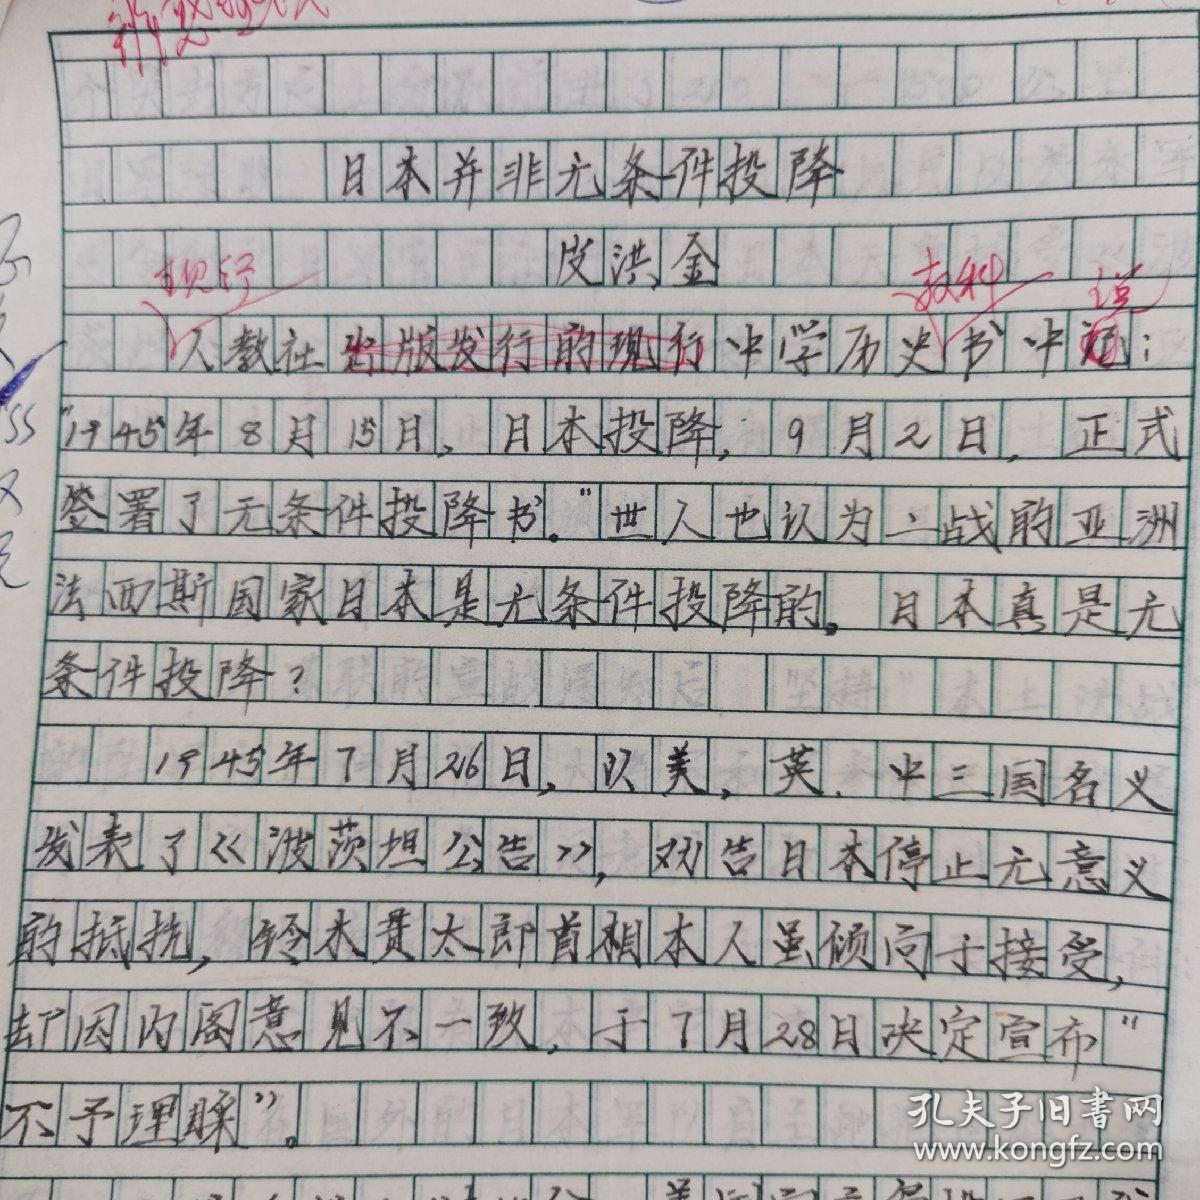 日本并非无条件投降
皮洪金
现行
教科
说
人教社出版发行的现行中学历史书中说：
"1945年8月15日，日本投降，9月2日，正式
签署了无条件投降书。"世人也认为二战的亚洲
法西斯国家日本是无条件投降的。日本真是无
条件投降？
1945年7月26日，以美，英，中三国名义
发表了《波茨坦公告》，劝告日本停止无意义
的抵抗，铃木贯太郎首相本人虽倾向于接受，
却因内阁意见不一致，于7月28日决定宣布"
不予理睬"。
孔夫子旧書网
www.kongfz.com